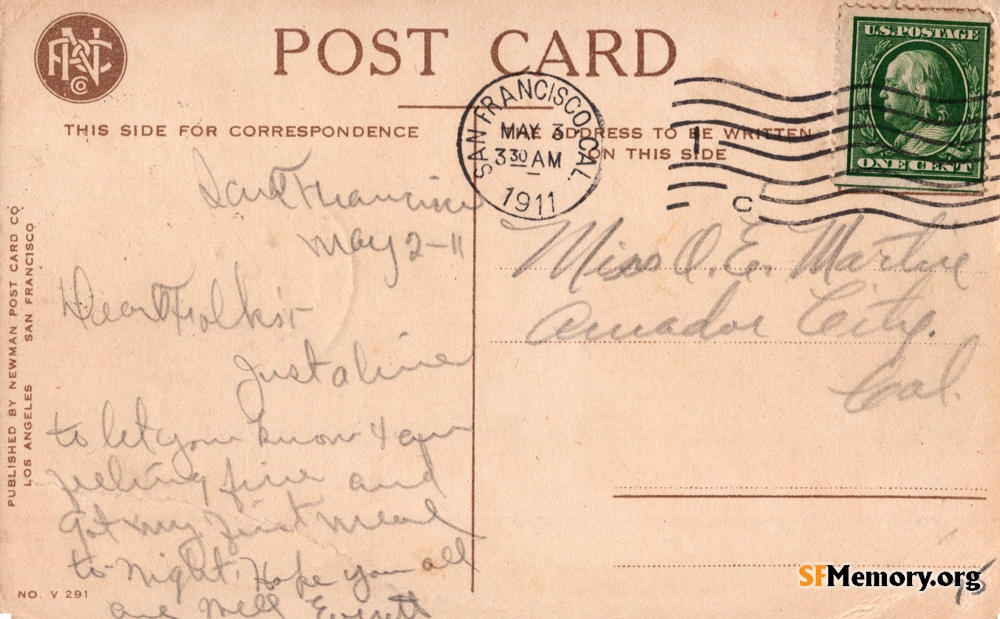 POST CARD
THIS SIDE FOR CORRESPONDENCE
THE ADDRESS TO BE WRITTEN
ON THIS SIDE
SAN FRANCISCO, CAL.
MAY 3
3 30 AM
1911
C
U.S. POSTAGE
ONE CENT
San Francisco
May 2-11
Dear Folks:
Just a line
to let you know I am
feeling fine and
got my first meal
to-night. Hope you all
are well Everett
Miss O. E.
Amador City.
Cal.
PUBLISHED BY NEWMAN POST CARD CO.
LOS ANGELES SAN FRANCISCO
NO. V 291
SFMemory.org